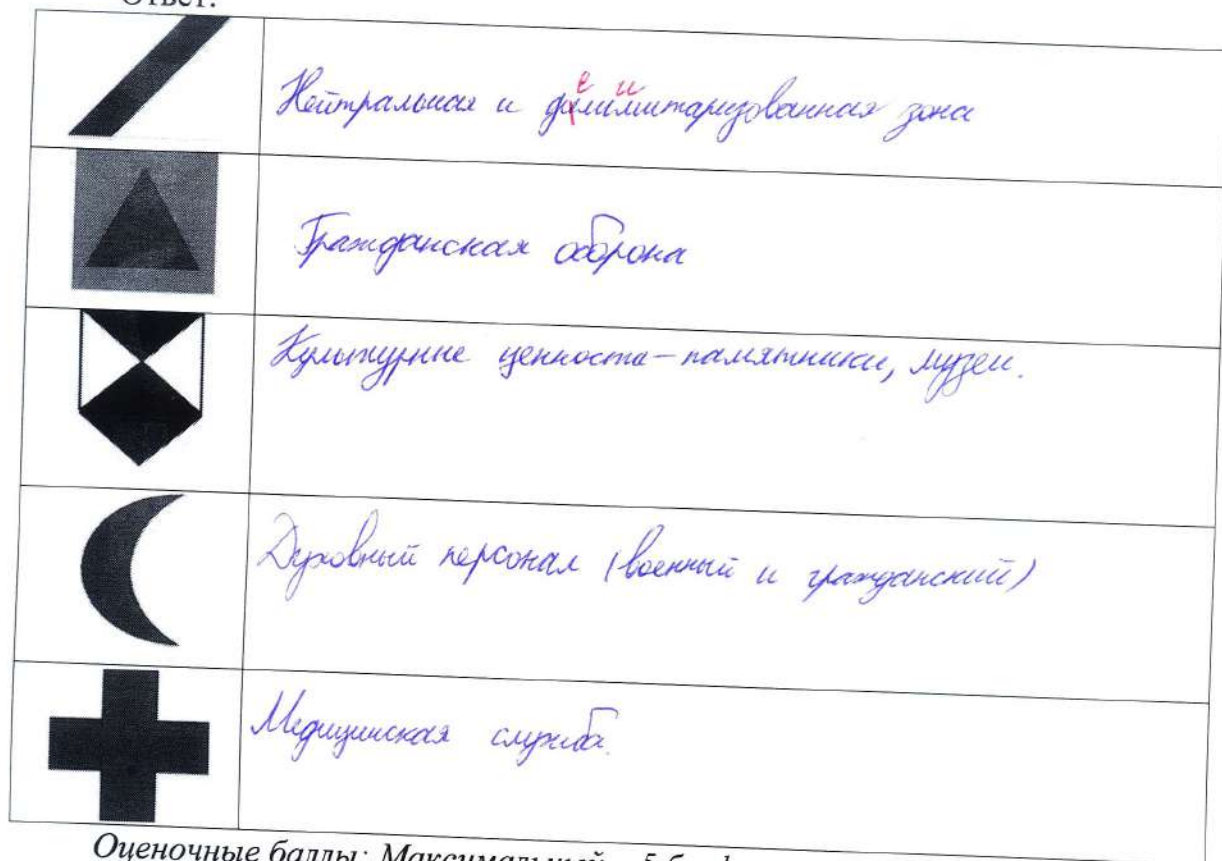 Ответ:
Нейтральная и демилитаризованная зона
Гражданская оборона
Культурные ценноста - памятники, музеи.
Духовный персонал (военный и гражданский)
Медицинская служба.
Оценочные баллы: Максимальный - 5 б